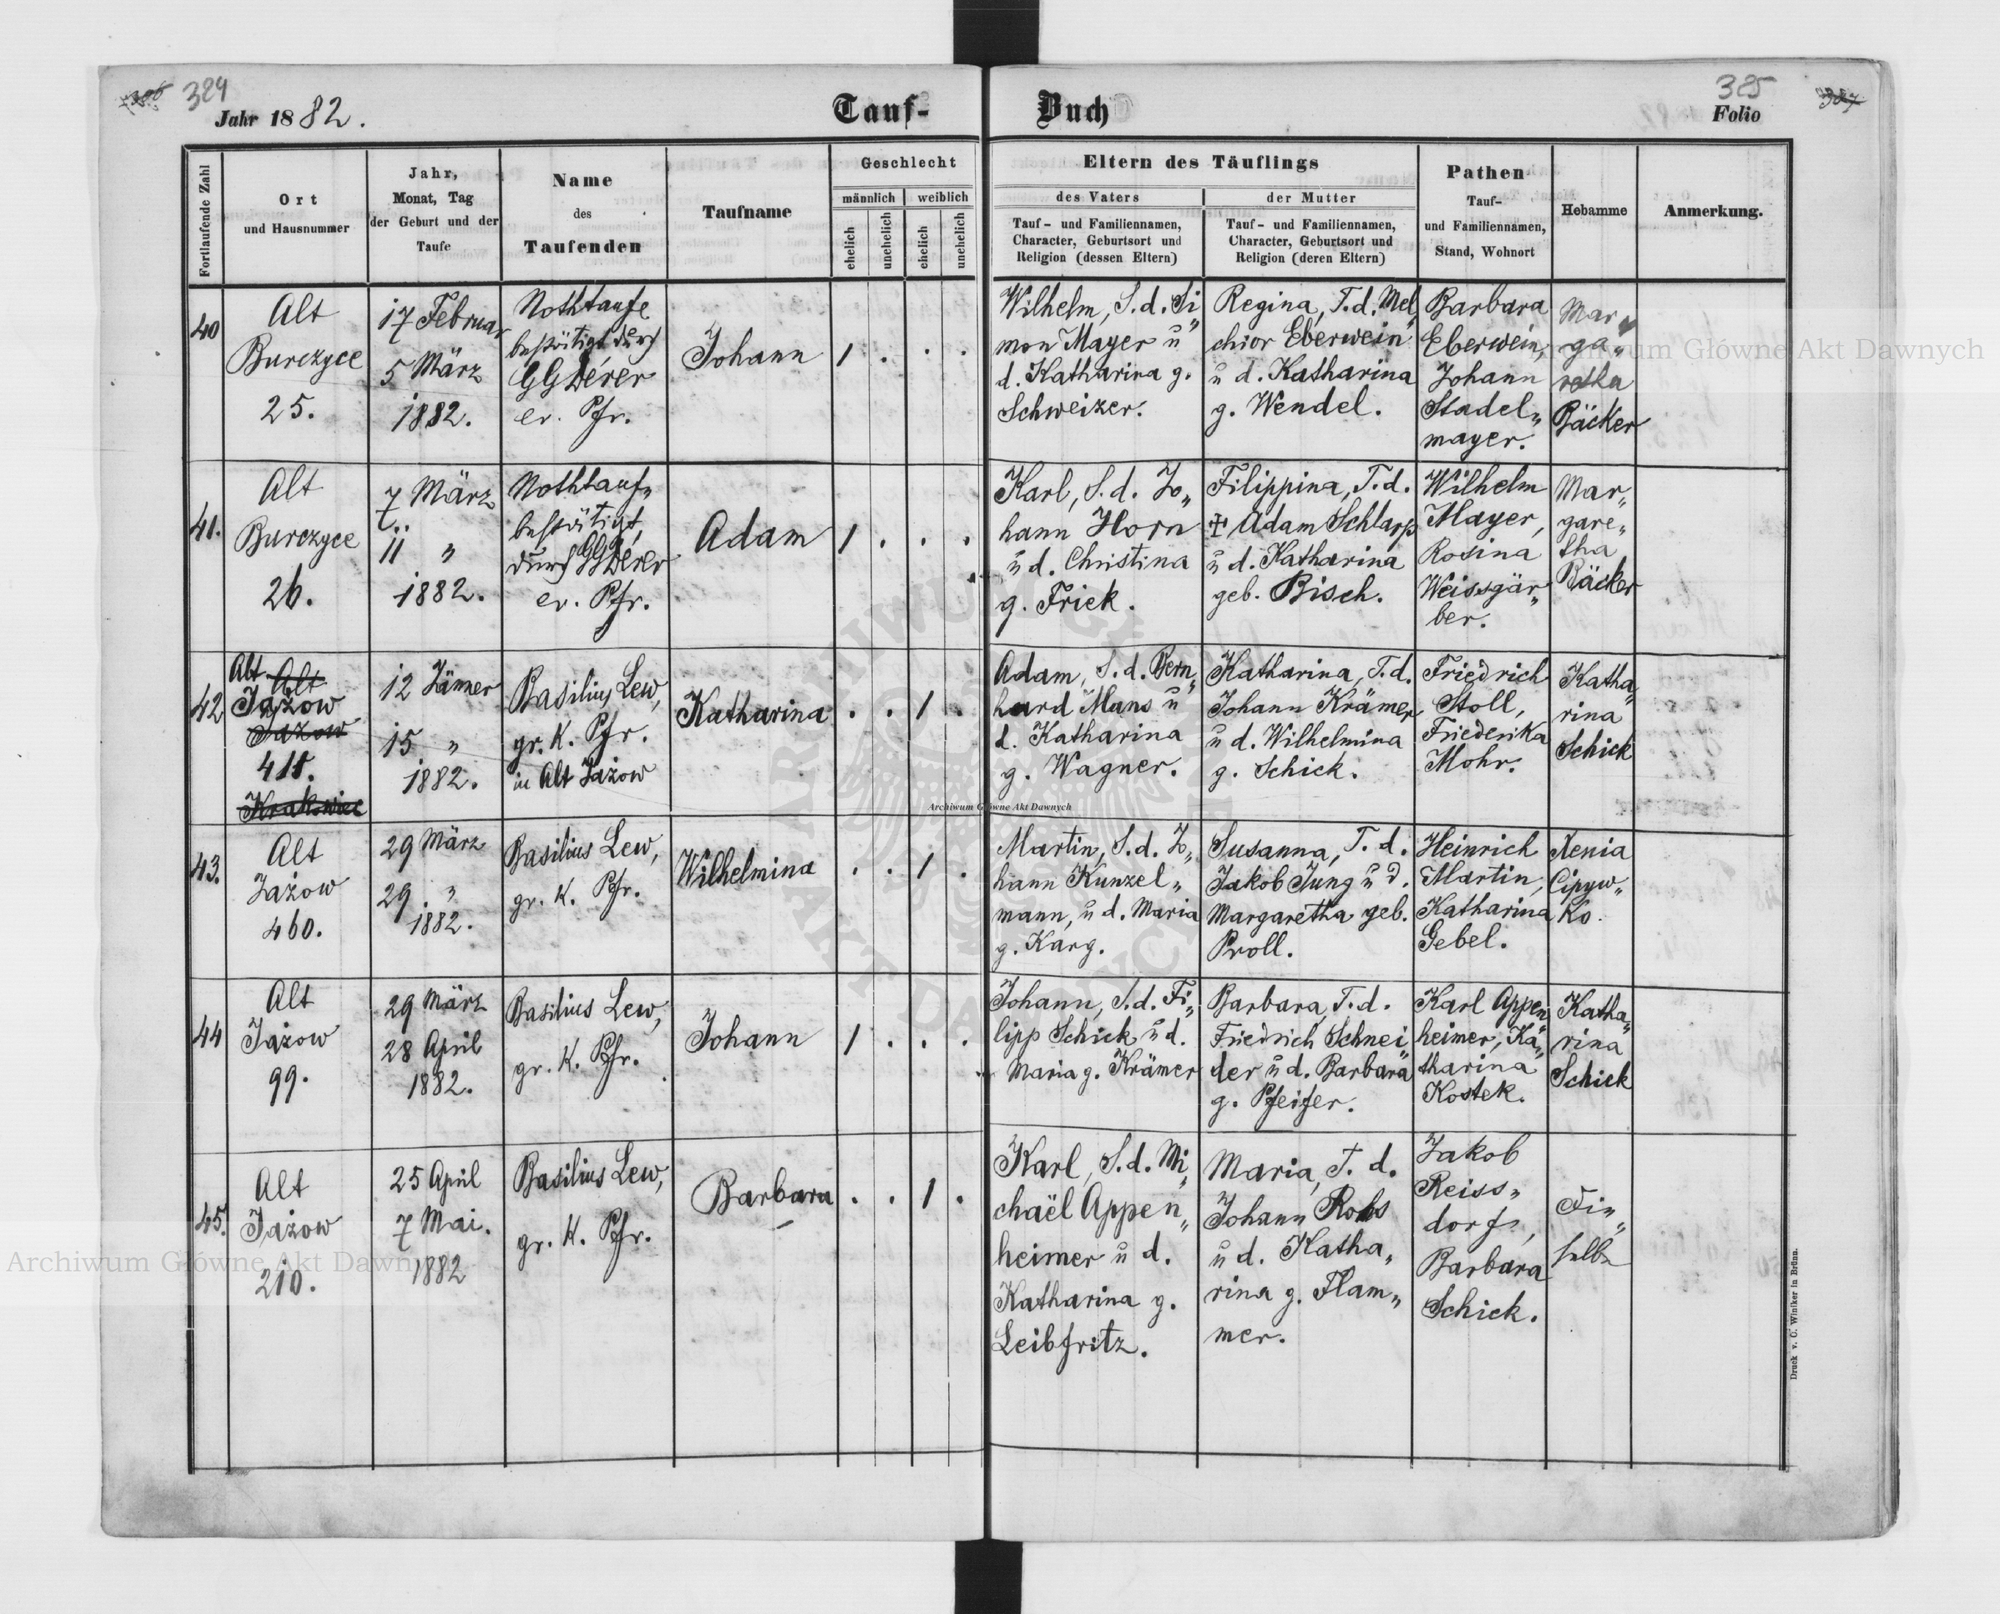 324
Jahr 1882.
Tauf-
Buch
325
Folio
Fortlaufende Zahl
Ort
und Hausnummer
Jahr,
Monat, Tag
der Geburt und der
Taufe
Name
des
Taufenden
Taufname
Geschlecht
männlich
weiblich
ehelich
unehelich
ehelich
unehelich
Eltern des Täuflings
des Vaters
Tauf- und Familiennamen,
Character, Geburtsort und
Religion (dessen Eltern)
der Mutter
Tauf- und Familiennamen,
Character, Geburtsort und
Religion (deren Eltern)
Pathen
Tauf-
und Familiennamen,
Stand, Wohnort
Hebamme
Anmerkung.
40
Alt
Burczyce
25.
17 Februar
5 März
1882.
Nothtaufe
bestätigt durch
GGDerer
ev. Pfr.
Johann
1 . . .
Wilhelm, S. d. Si„
mon Mayer u
d. Katharina g.
Schweizer.
Regina, T. d. Mel„
chior Eberwein
u d. Katharina
g. Wendel.
Barbara
Eberwein,
Johann
Stadel„
mayer.
Mar„
ga„
retha
Bäcker
41.
Alt
Burczyce
26.
7 März
11 „
1882.
Nothtauf„
bestätigt,
durch GGDerer
ev. Pfr.
Adam
1 . . .
Karl, S. d. Jo„
hann Horn
u d. Christina
g. Frick.
Filippina, T. d.
✠ Adam Schlarp
u d. Katharina
geb. Bisch.
Wilhelm
Mayer,
Rosina
Weissgär„
ber.
Mar„
gare„
tha
Bäcker
42
Alt Alt
Jażow
Jażow
411.
Krakowiec
12 Jänner
15 „
1882.
Basilius Lew,
gr. K. Pfr.
in Alt Jażow
Katharina
. . 1 .
Adam, S. d. Bern„
hard Mans u
d. Katharina
g. Wagner.
Katharina, T. d.
Johann Krämer
u d. Wilhelmina
g. Schick.
Friedrich
Stoll,
Friederika
Mohr.
Katha„
rina
Schick
43.
Alt
Jażow
460.
29 März
29 „
1882.
Basilius Lew,
gr. K. Pfr.
Wilhelmina
. . 1 .
Martin, S. d. Jo„
hann Kunzel„
mann, u d. Maria
g. Karg.
Susanna, T. d.
Jakob Jung u d.
Margaretha geb.
Proll.
Heinrich
Martin,
Katharina
Gebel.
Xenia
Cipyw„
ko.
44
Alt
Jażow
99.
29 März
28 April
1882.
Basilius Lew,
gr. K. Pfr.
Johann
1 . . .
Johann, S. d. Fi„
lipp Schick u d.
Maria g. Krämer
Barbara, T. d.
Friedrich Schnei„
der u d. Barbara
g. Pfeifer.
Karl Appen„
heimer, Ka„
tharina
Kostek.
Katha„
rina
Schick
45.
Alt
Jażow
210.
25 April
7 Mai.
1882
Basilius Lew,
gr. K. Pfr.
Barbara
. . 1 .
Karl, S. d. Mi„
chaël Appen„
heimer u d.
Katharina g.
Leibfritz.
Maria, T. d.
Johann
u d. Katha„
rina g. Flam„
mer.
Jakob
Reiss„
dorf,
Barbara
Schick.
Die„
selbe
Druck v. C. Winiker in Brünn.
Archiwum Główne Akt Dawnych
Archiwum Główne Akt Dawnych
Archiwum Główne Akt Dawnych